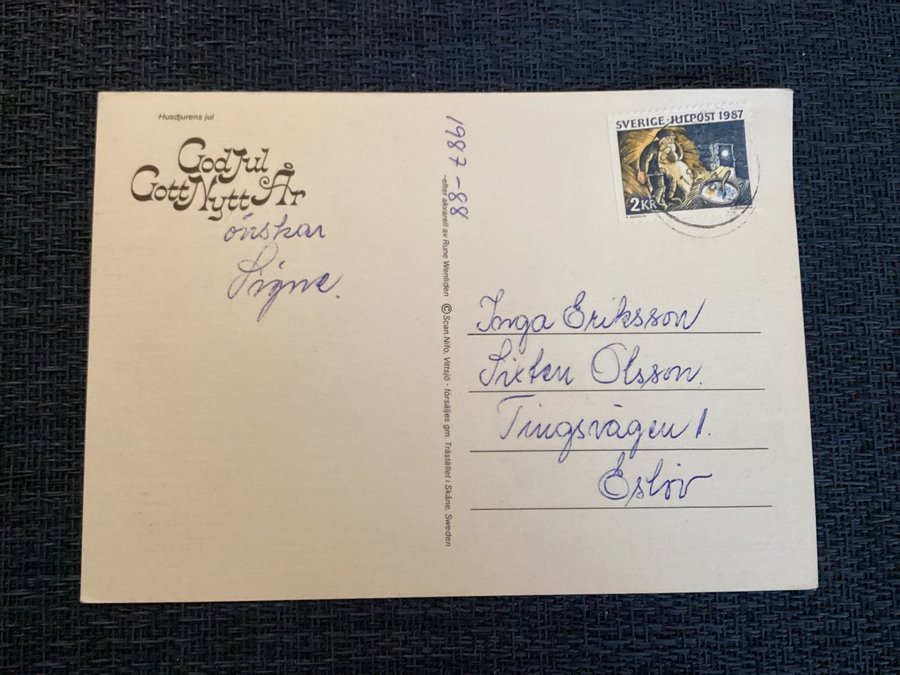 Husdjurens jul
God Jul
Gott Nytt År
önskar
Signe.
1987-88
-efter akvarell av Rune Wenliden © Scan.Nifo, Vittsjö - försäljes gm. Trästället i Skåne, Sweden
SVERIGE·JULPOST 1987
2 KR
Inga Eriksson
Sixten Olsson.
Tingsvägen 1.
Eslöv